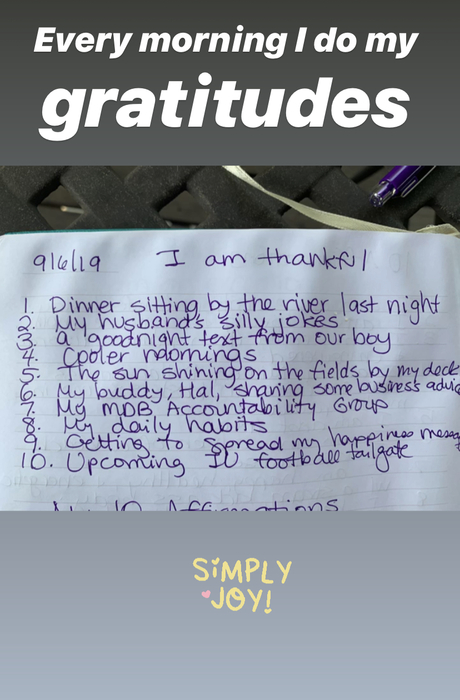 Every morning I do my
gratitudes
9/6/19 I am thankful
1. Dinner sitting by the river last night
2. My husband's silly jokes
3. a goodnight text from our boy
4. Cooler mornings
5. The sun shining on the fields by my deck
6. My buddy, Hal, sharing some business advic
7. My MDB Accountability Group
8. My daily habits
9. Getting to spread my happiness messa
10. Upcoming IU football tailgate
10 Affirmations
SIMPLY
JOY!